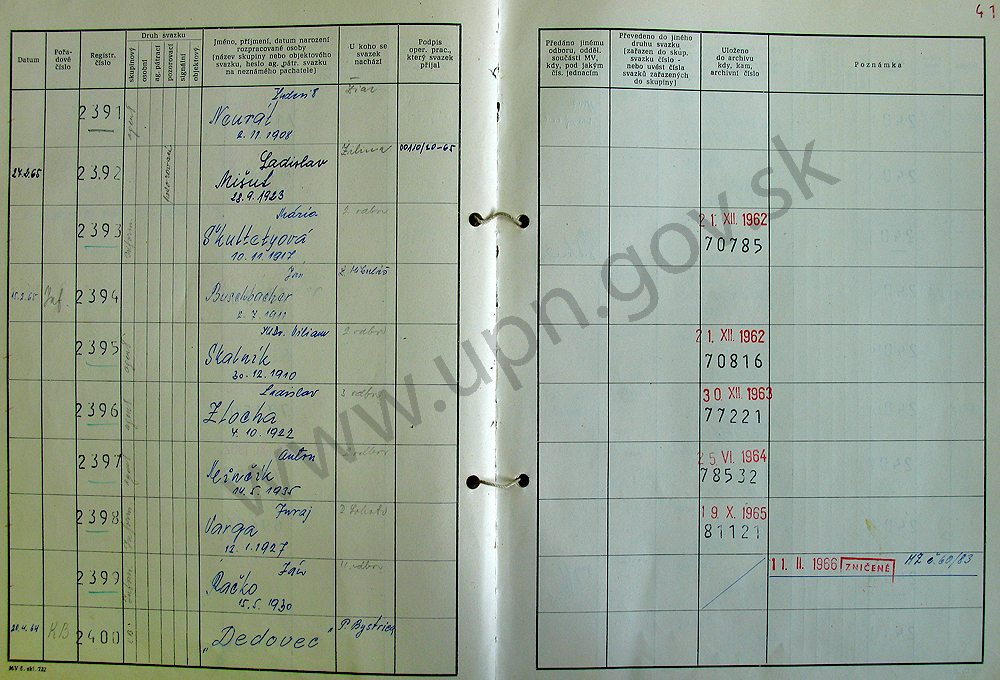 41
Datum
Pořa-
dové
číslo
Registr.
číslo
Druh svazku
skupinový
osobní
ag. pátrací
pozorovací
signální
objektový
Jméno, příjmení, datum narození
rozpracované osoby
(název skupiny nebo objektového
svazku, heslo ag. pátr. svazku
na neznámého pachatele)
U koho se
svazek
nachází
Podpis
oper. prac.,
který svazek
přijal
Předáno jinému
odboru, odděl.
součásti MV,
kdy, pod jakým
čís. jednacím
Převedeno do jiného
druhu svazku
(zařazen do skup.
svazku číslo -
nebo uvést čísla
svazků zařazených
do skupiny)
Uloženo
do archivu
kdy, kam,
archivní číslo
Poznámka
2391
agent
2.11.1908
Žiar
24.2.65
2392
pozorovací
Ladislav
Mišut
28.9.1923
Žilina
00110/20-65
2393
inform
Mária
Škultetyová
10.11.1917
2. odbor
21. XII. 1962
70785
15.2.65
Inf.
2394
Jan
Buschbacher
2.7.1911
L. Mikuláš
2395
agent
JUDr. Viliam
Skalník
30.12.1910
2. odbor
21. XII. 1962
70816
2396
agent
Ladislav
Zlocha
4.10.1922
3. odbor
30 XII. 1963
77221
2397
agent
Anton
14.5.1935
odbor
25 VI. 1964
78532
2398
inform
Juraj
Varga
12.1.1927
19 X. 1965
81121
2399
inform
Ján
Račko
15.5.1930
odbor
11. II. 1966 ZNIČENÉ
č. 60/83
28.4.64
KB
2400
„Dedovec"
P. Bystrica
MV č. skl. 722
www.upn.gov.sk